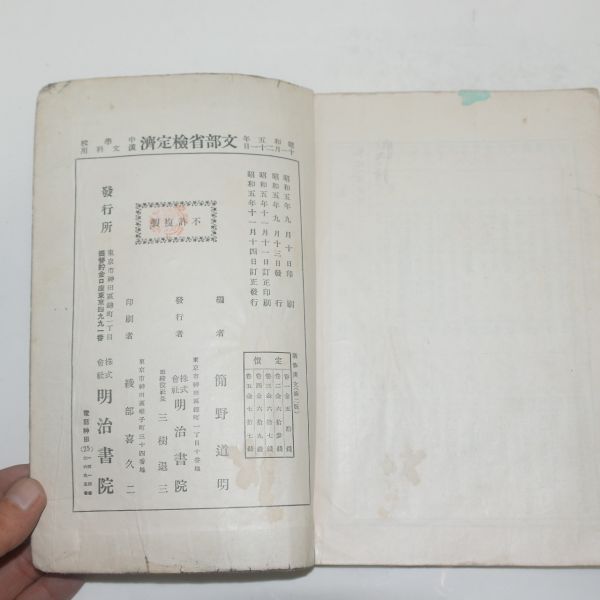 昭和五年十一月二十一日
文部省檢定濟
中學校
漢文科用
昭和五年九月十日印刷
昭和五年九月十三日發行
昭和五年十一月十一日訂正印刷
昭和五年十一月十四日訂正發行
不許複製
定價
卷一金五拾錢
卷二金六拾參錢
卷三金六拾七錢
卷四金六拾九錢
卷五金七拾七錢
編者 簡野道明
東京市神田區錦町一丁目十番地
發行者 株式會社 明治書院
三樹退三
東京市神田區
三十四番地
印刷者 綾部喜久二
發行所
東京市神田區錦町一丁目
振替貯金口座東京四九九一番
株式會社 明治書院
電話神田(25)